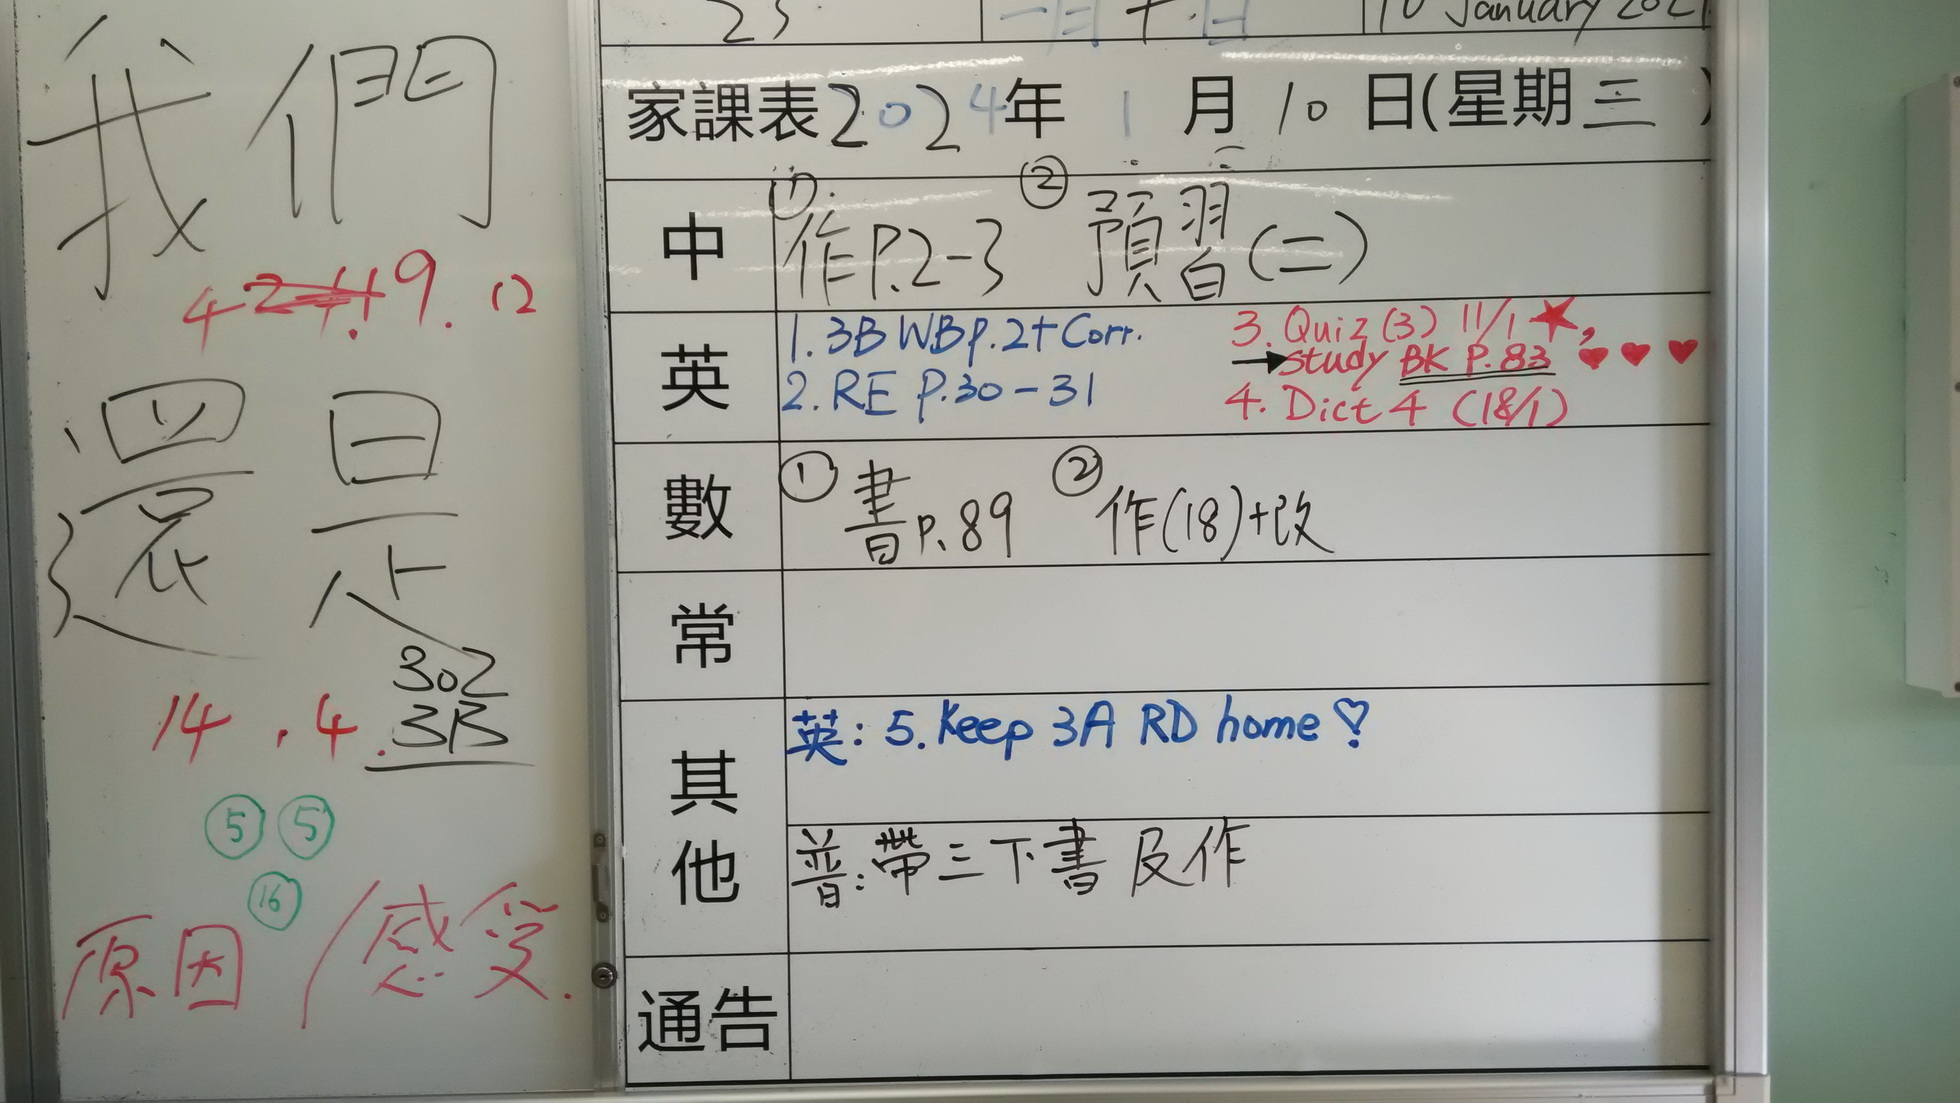 我們
4 9. 12
還是
14 . 4.
302
3B
5 5
16
原因/感受.
23 一月十日 10 January 202
家課表2024年 1 月 10 日(星期三 )
中 ①作P.2-3 ②預習(二)
英 1. 3B WB p.2 + Corr. 3. Quiz (3) 11/1
→study BK P.83
2. RE P.30-31 4. Dict 4 (18/1)
數 ①書P.89 ②作(18)+改
常
其他 英: 5. Keep 3A RD home
普:帶三下書及作
通告